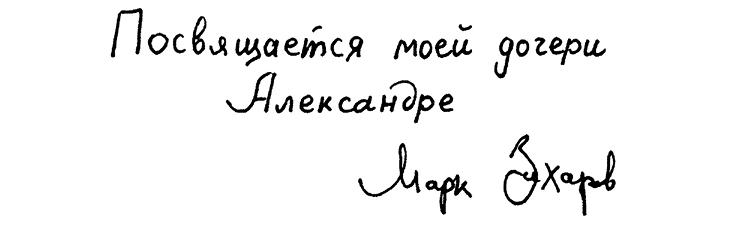 Посвящается моей дочери
Александре
Марк Захаров